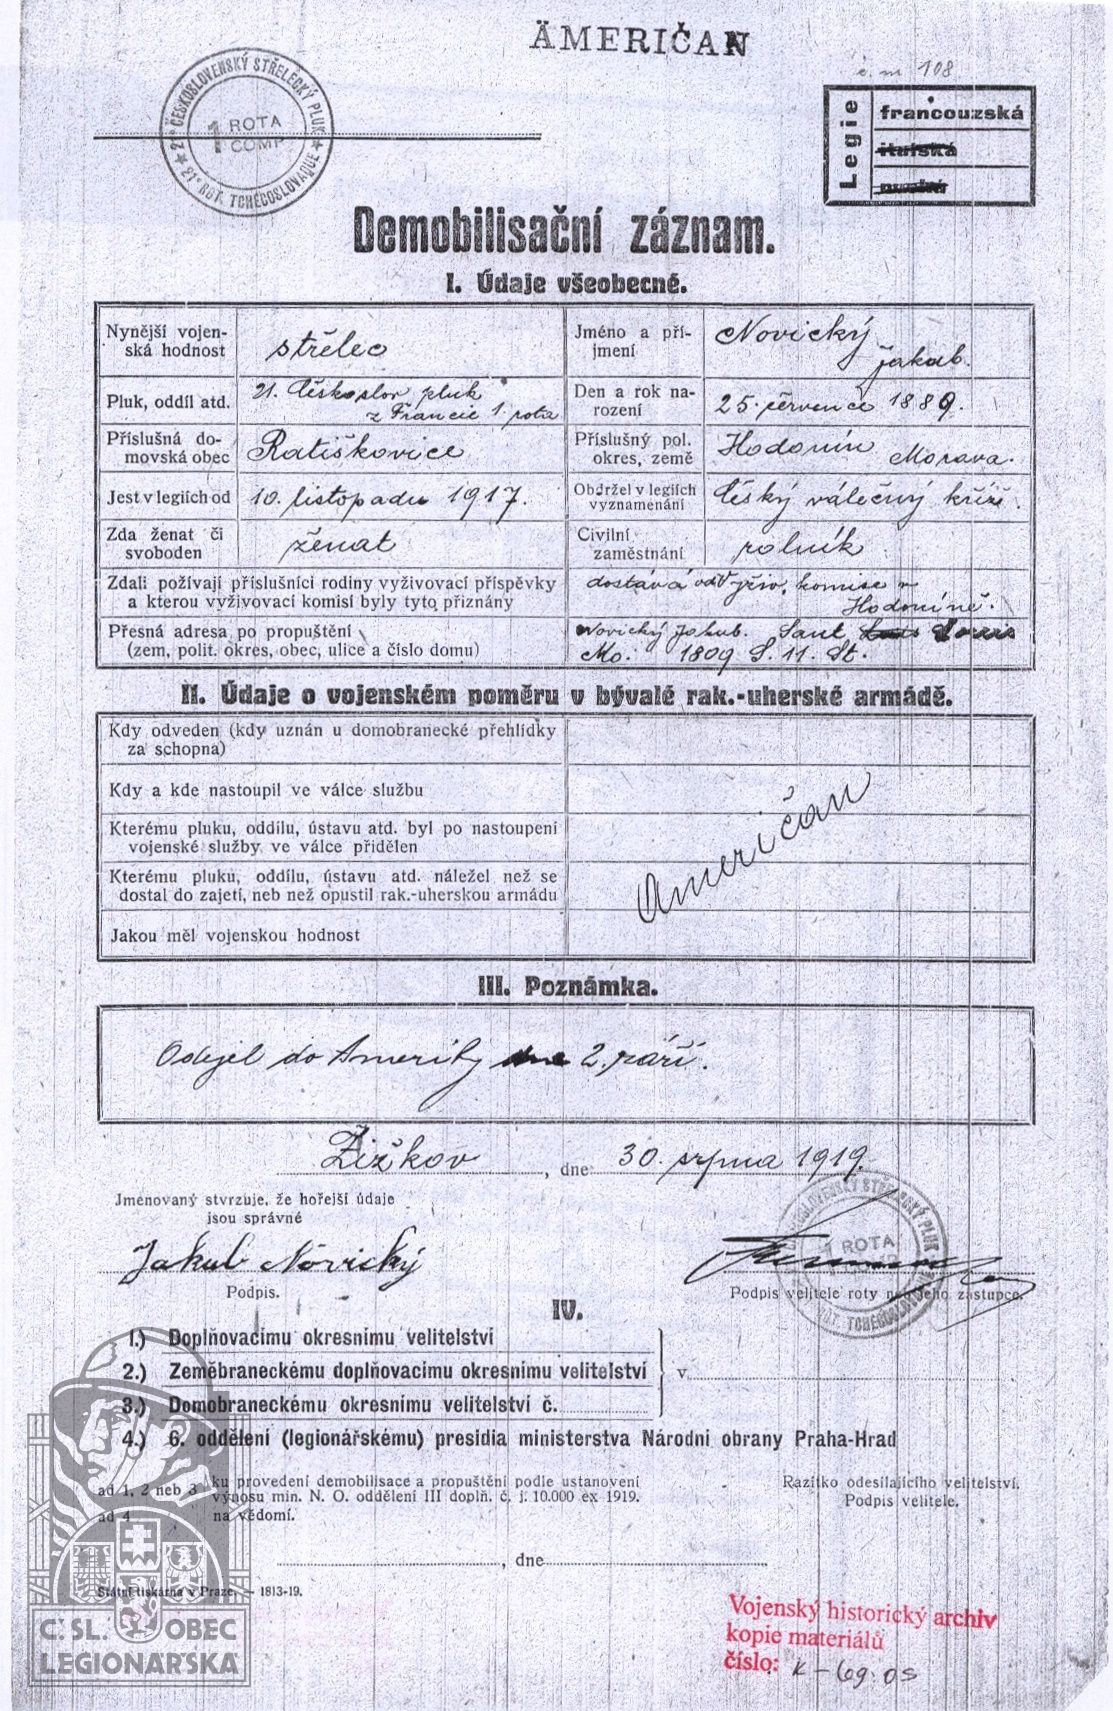 ÄMERIČAN
č. m 108
21º ČESKOSLOVENSKÝ STŘELECKÝ PLUK
1 ROTA
COMP
21º RGT. TCHÉCOSLOVAQUE
Legie
francouzská
italská
ruská
Demobilisační záznam.
I. Údaje všeobecné.
Nynější vojen-
ská hodnost
střelec
Jméno a pří-
jmení
Novický
Jakub.
Pluk, oddíl atd.
21. Českoslov pluk
z Francie 1. rota
Den a rok na-
rození
25. července 1889.
Příslušná do-
movská obec
Ratiškovice
Příslušný pol.
okres, země
Hodonín Morava.
Jest v legiích od
10. listopadu 1917.
Obdržel v legiích
vyznamenání
Český válečný kříž.
Zda ženat či
svoboden
ženat
Civilní
zaměstnání
rolník.
Zdali požívají příslušníci rodiny vyživovací příspěvky
a kterou vyživovací komisí byly tyto přiznány
dostává od Vyživ. komise v
Hodoníně.
Přesná adresa po propuštění
(zem, polit. okres, obec, ulice a číslo domu)
Novický Jakub. Sant Louis
Mo. 1809 S. 11. St.
II. Údaje o vojenském poměru v bývalé rak.-uherské armádě.
Kdy odveden (kdy uznán u domobranecké přehlídky
za schopna)
Kdy a kde nastoupil ve válce službu
Kterému pluku, oddílu, ústavu atd. byl po nastoupení
vojenské služby ve válce přidělen
Kterému pluku, oddílu, ústavu atd. náležel než se
dostal do zajetí, neb než opustil rak.-uherskou armádu
Jakou měl vojenskou hodnost
Američan
III. Poznámka.
Odejel do Ameriky dne 2. září.
Žižkov, dne 30. srpna 1919.
Jmenovaný stvrzuje, že hořejší údaje
jsou správné
Jakub Novický
Podpis.
ČESKOSLOVENSKÝ STŘELECKÝ PLUK
1 ROTA
RGT. TCHÉCOSLOVAQUE
Podpis velitele roty neb jeho zástupce.
IV.
1.) Doplňovacímu okresnímu velitelství
2.) Zeměbraneckému doplňovacímu okresnímu velitelství
3.) Domobraneckému okresnímu velitelství č.
v
4.) 6. oddělení (legionářskému) presidia ministerstva Národní obrany Praha-Hrad
ad 1, 2 neb 3 ku provedení demobilisace a propuštění podle ustanovení
výnosu min. N. O. oddělení III doplň. č. j. 10.000 ex 1919.
ad 4 na vědomí.
Razítko odesílajícího velitelství.
Podpis velitele.
, dne
Státní tiskárna v Praze. — 1813-19.
Č. SL. OBEC
LEGIONÁŘSKÁ
Vojenský historický archiv
kopie materiálů
číslo: K-69-05